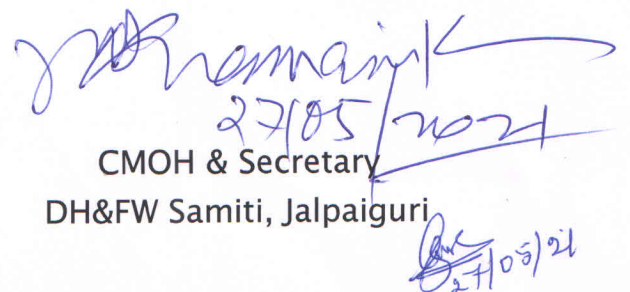 27/05/2021
CMOH & Secretary
DH&FW Samiti, Jalpaiguri
27/05/21